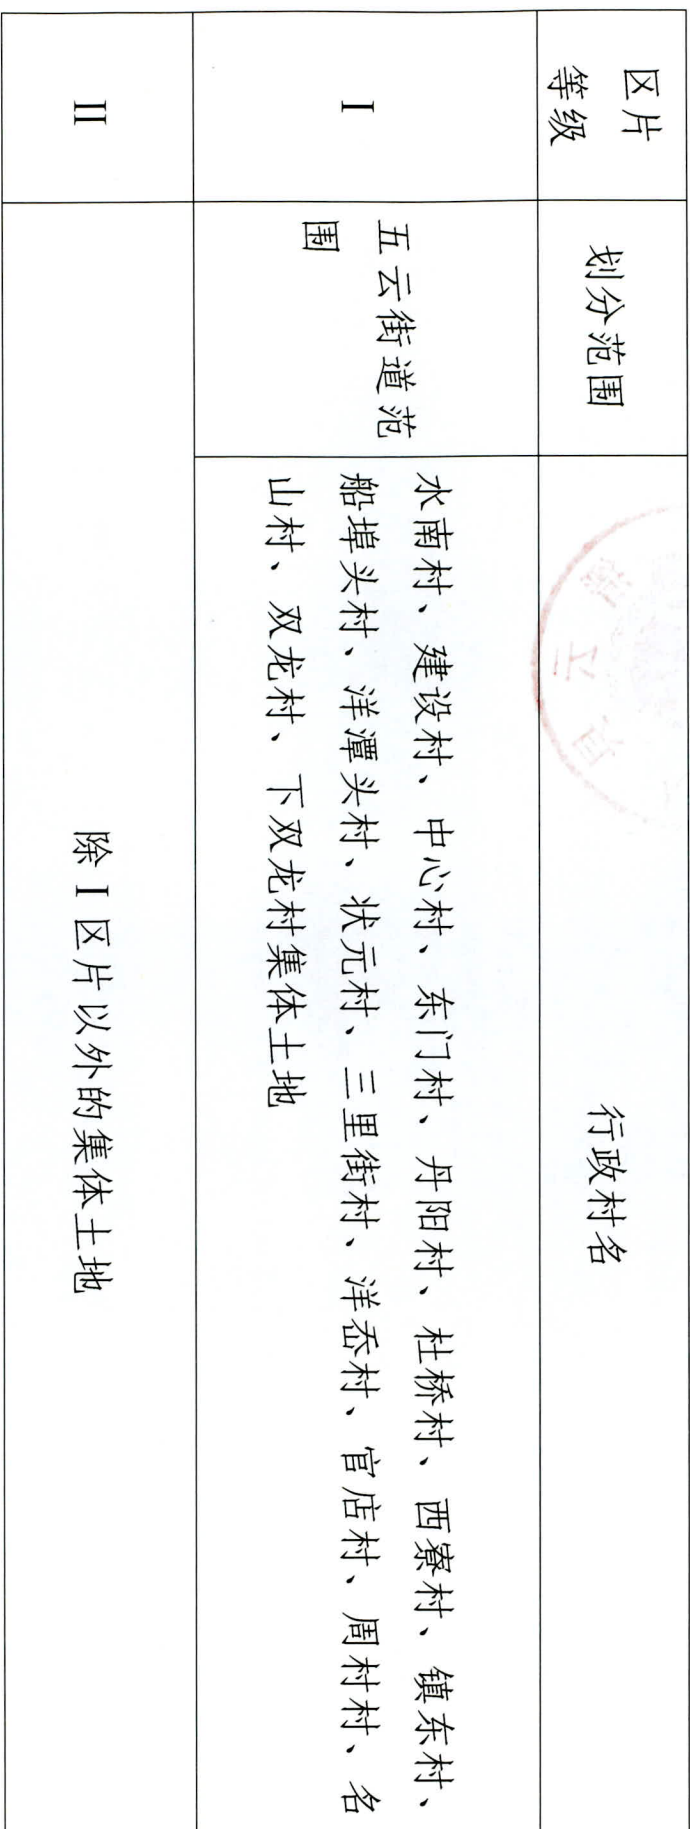 区片
等级
划分范围
行政村名
I
五云街道范
围
水南村、建设村、中心村、东门村、丹阳村、杜桥村、西寮村、镇东村、
船埠头村、洋潭头村、状元村、三里街村、洋岙村、官店村、周村村、名
山村、双龙村、下双龙村集体土地
II
除 I 区片以外的集体土地